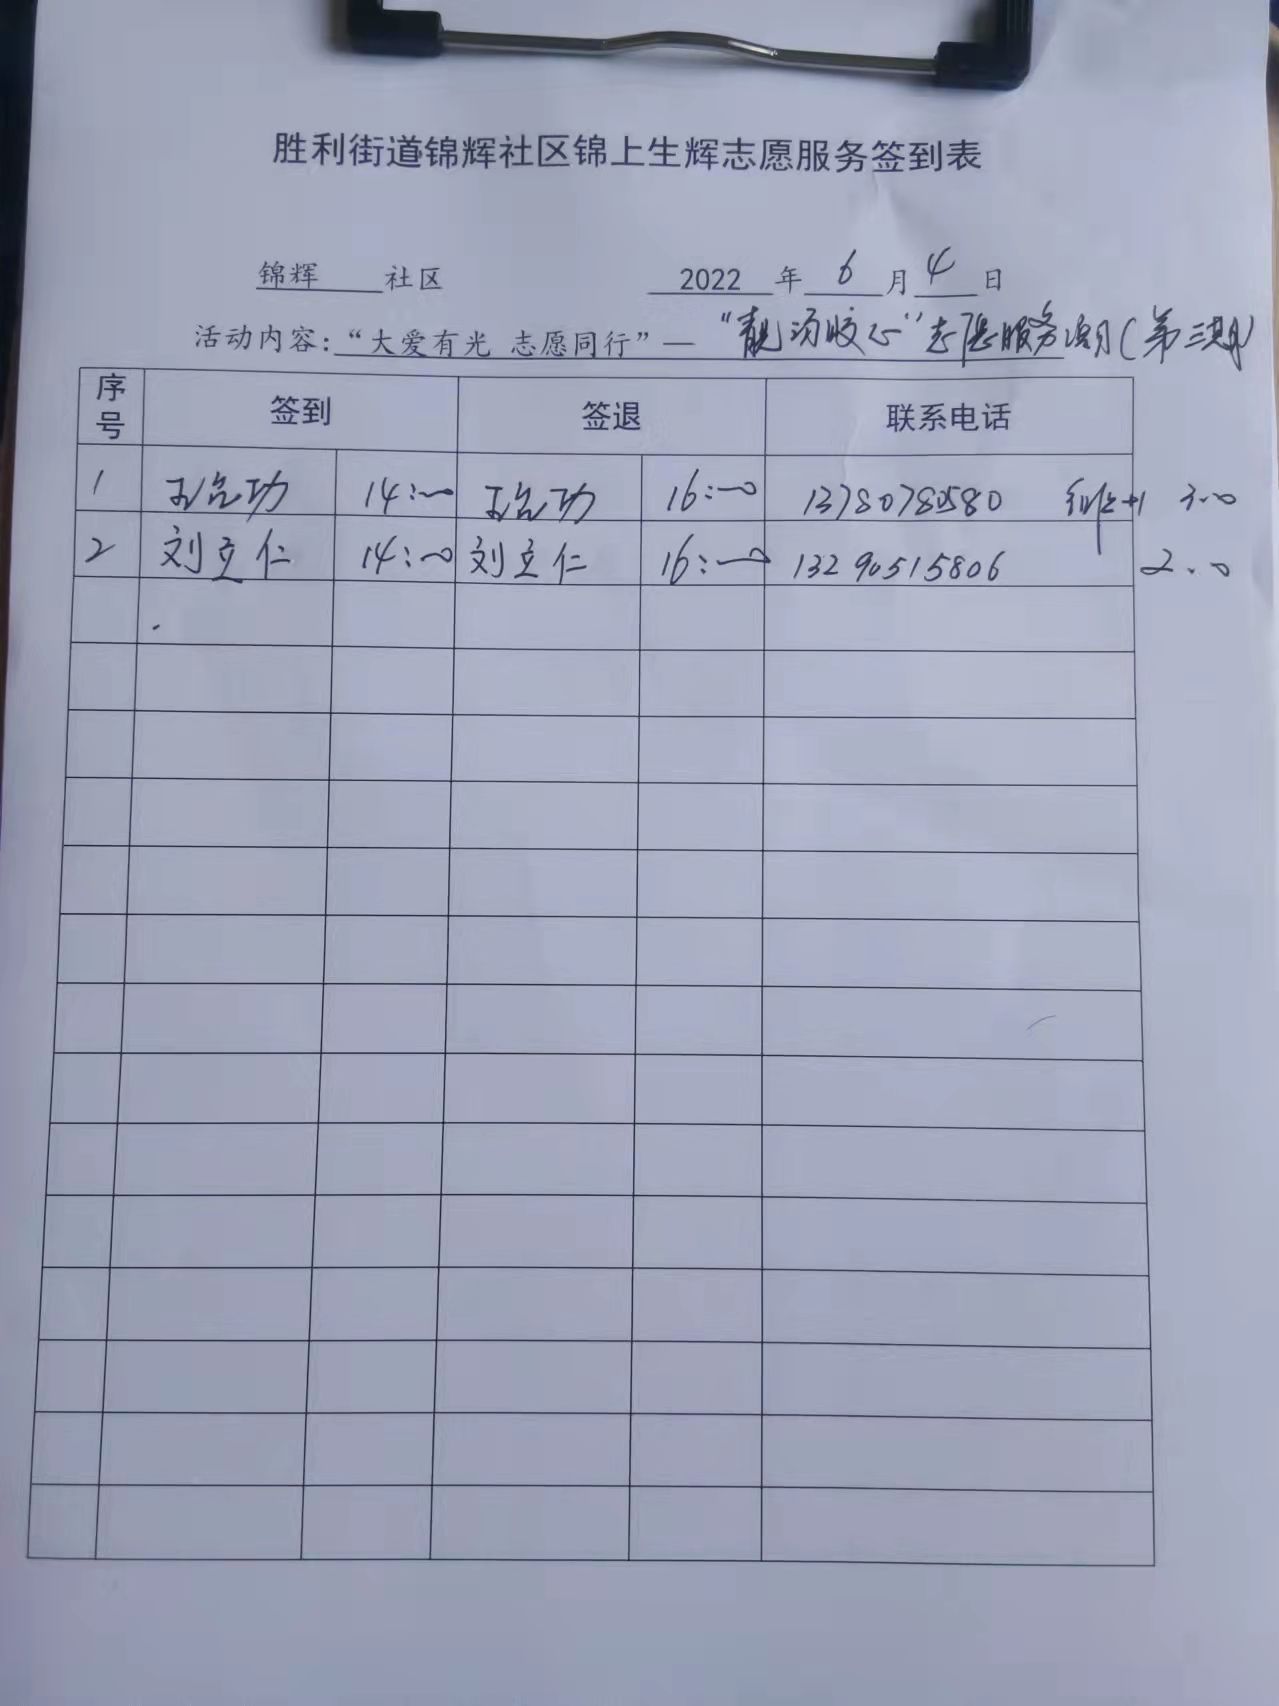 胜利街道锦辉社区锦上生辉志愿服务签到表
锦辉 社区 2022 年 6 月 4 日
活动内容：“大爱有光 志愿同行”—“靓颈暖心”志愿服务活动(第三期)
序号 签到 签退 联系电话
1 14:00 16:00 13780780580 组织+1 3.0
2 刘立仁 14:00 刘立仁 16:00 13290515806 2.0